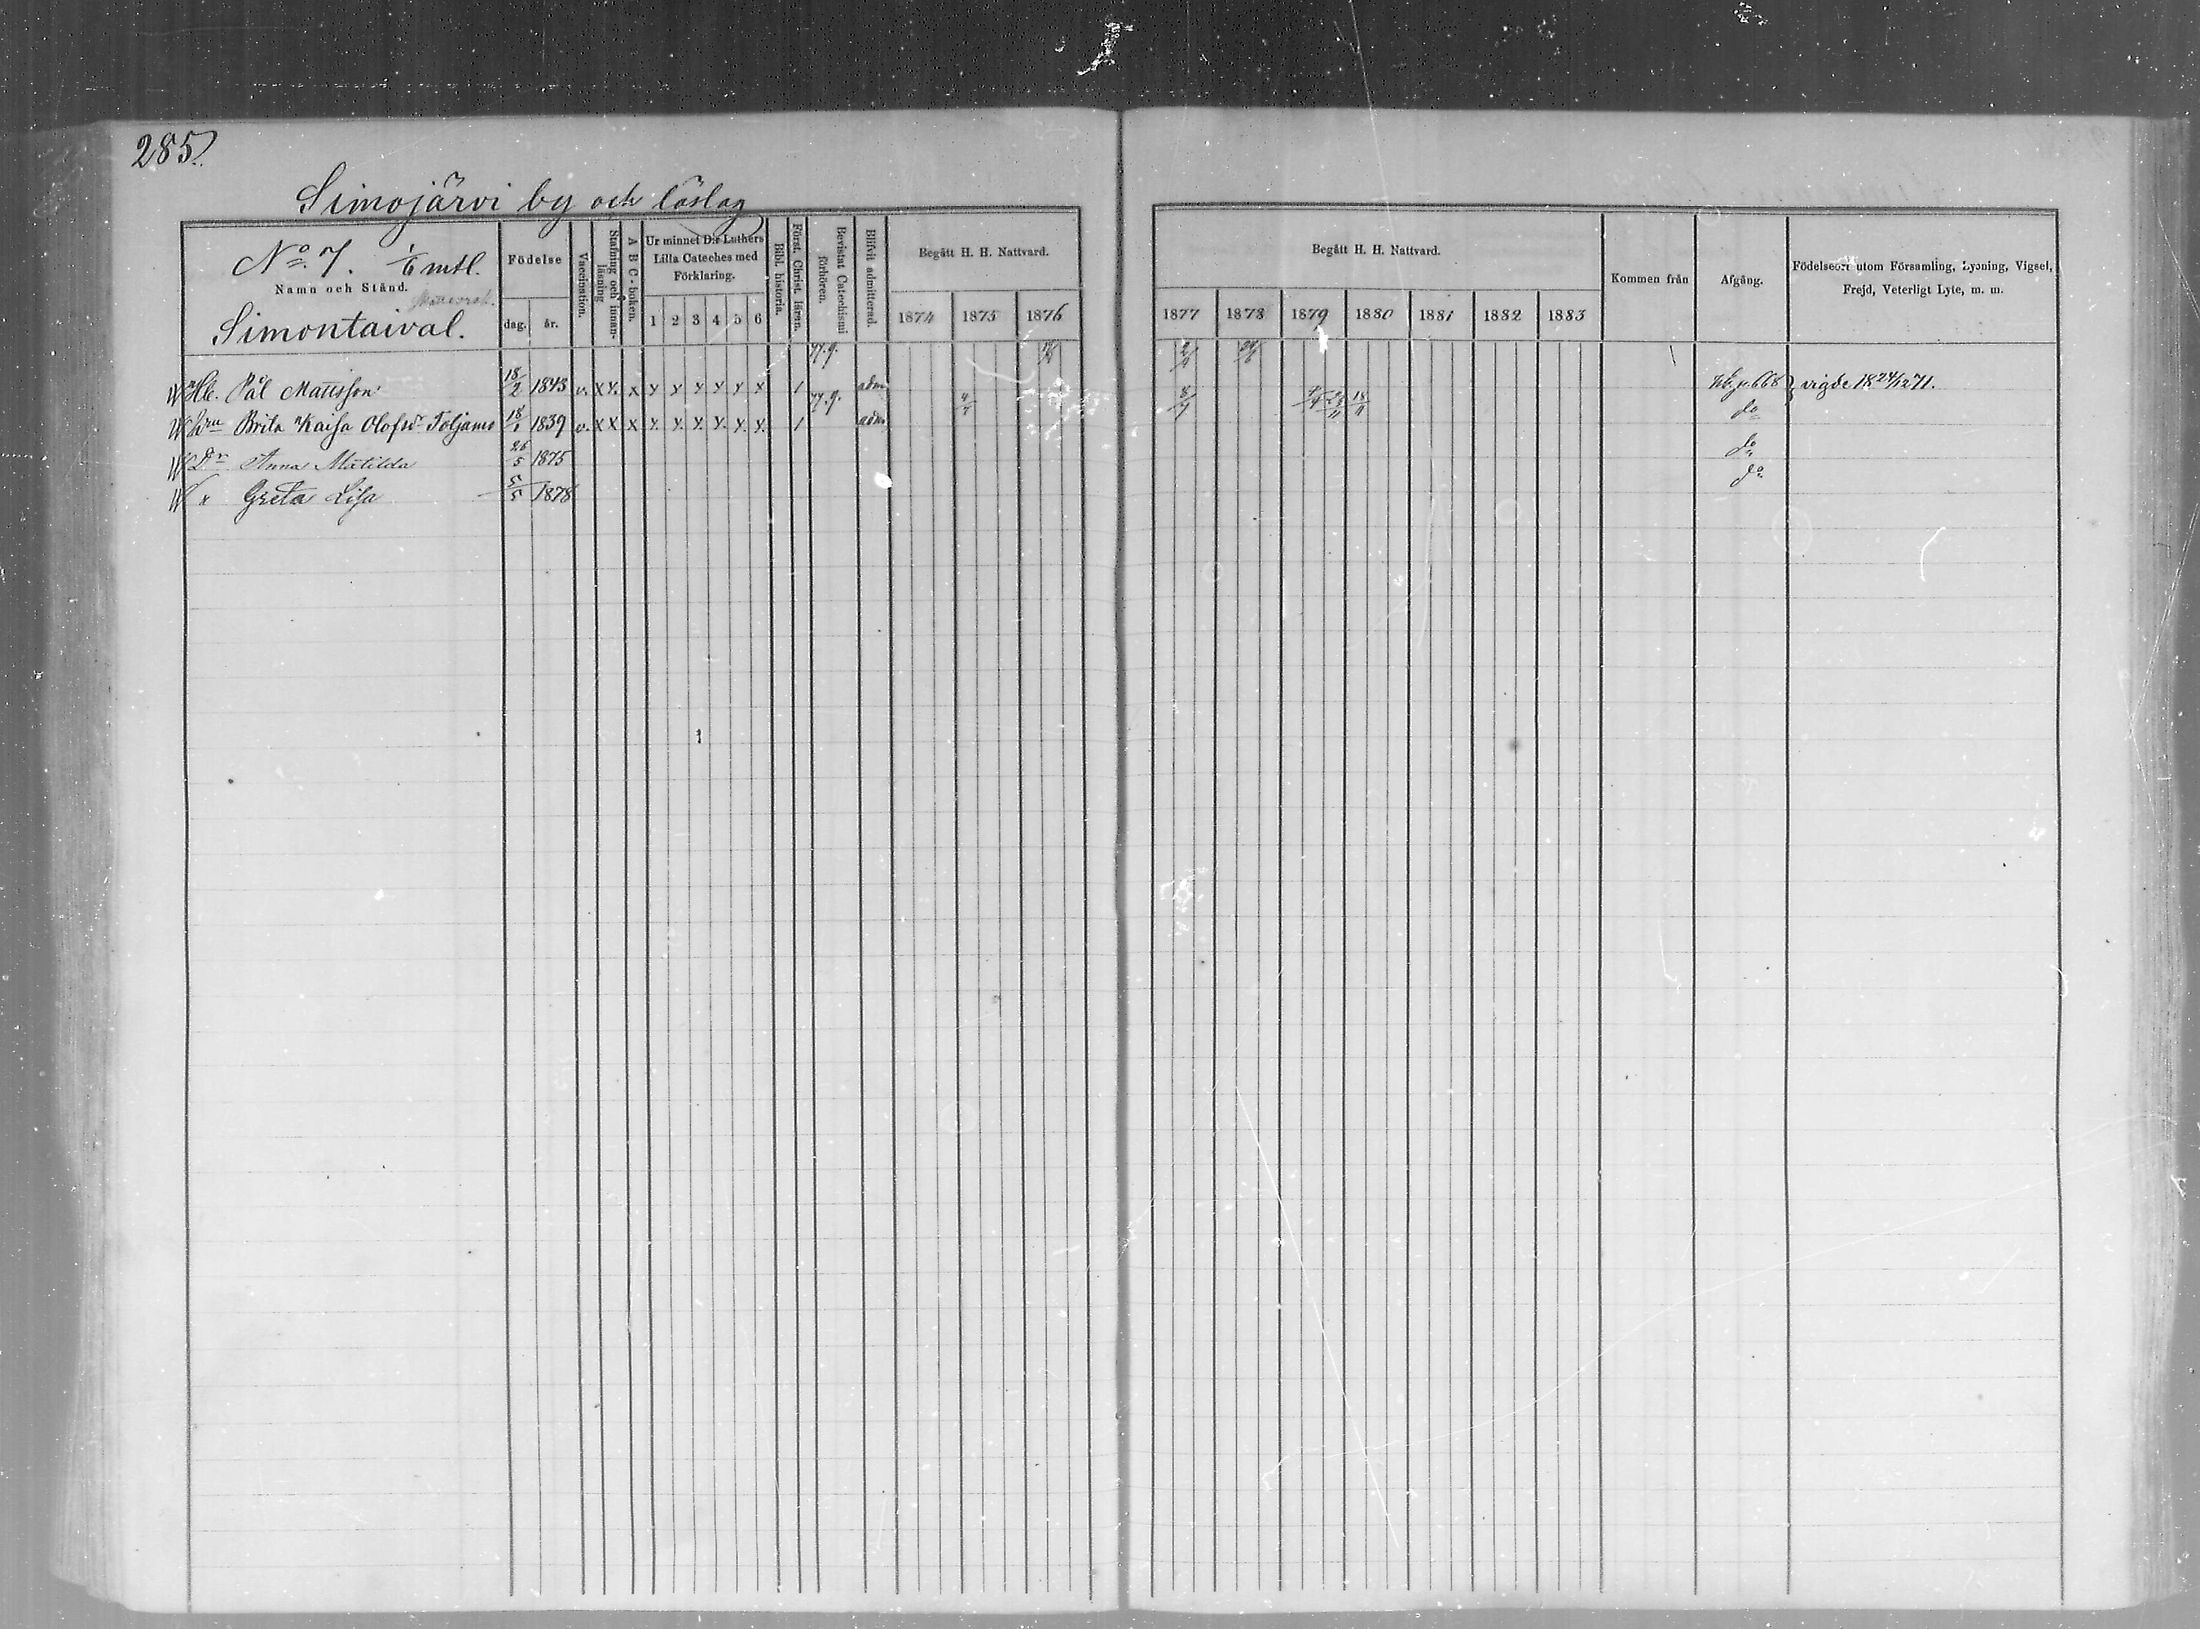 285.
Simojärvi by och läslag
No. 7. 1/6 mtl.
Namn och Stånd.
Simontaival.
Födelse
dag. år.
Vaccination.
Stafning och innan-läsning.
A B C-boken.
Ur minnet D:r Luthers Lilla Cateches med Förklaring.
1 2 3 4 5 6
Bibl. historia.
Först. Christ. läran.
Bevistat Catechismi förhören.
Blifvit admitterad.
Begått H. H. Nattvard.
1874 1875 1876
Begått H. H. Nattvard.
1877 1878 1879 1880 1881 1882 1883
Kommen från
Afgång.
Födelseort utom Församling, Lysning, Vigsel, Frejd, Veterligt Lyte, m. m.
Pål Mattsson 18/2 1843 v. x x x x x x x x x 1 77.9. adm p. 668 } vigde 18 24/12 71.
hru Brita Kaisa Olofsdr Toljamo 18/1 1839 v. x x x x x x x x x 1 77.9. adm 4/7 8/7 18/11 do
Dr Anna Matilda 26/5 1875 do
" Greta Lisa 5/5 1878 do